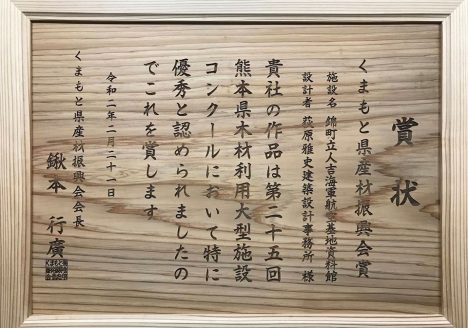 賞状
くまもと県産材振興会賞
施設名 錦町立人吉海軍航空基地資料館
設計者 萩原雅史建築設計事務所 様
貴社の作品は第二十五回
熊本県木材利用大型施設
コンクールにおいて特に
優秀と認められましたの
でこれを賞します
令和二年二月二十一日
くまもと県産材振興会会長
鍬本 行廣